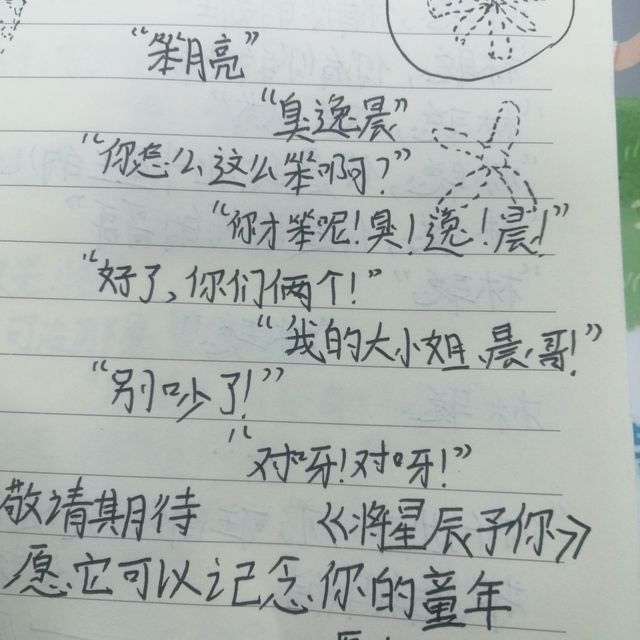 “笨月亮”
“臭逸晨”
“你怎么这么笨啊？”
“你才笨呢！臭！逸！晨！”
“好了，你们俩个！”
“我的大小姐、晨哥！”
“别吵了！”
“对呀！对呀！”
敬请期待 《将星辰予你》
愿它可以记念你的童年